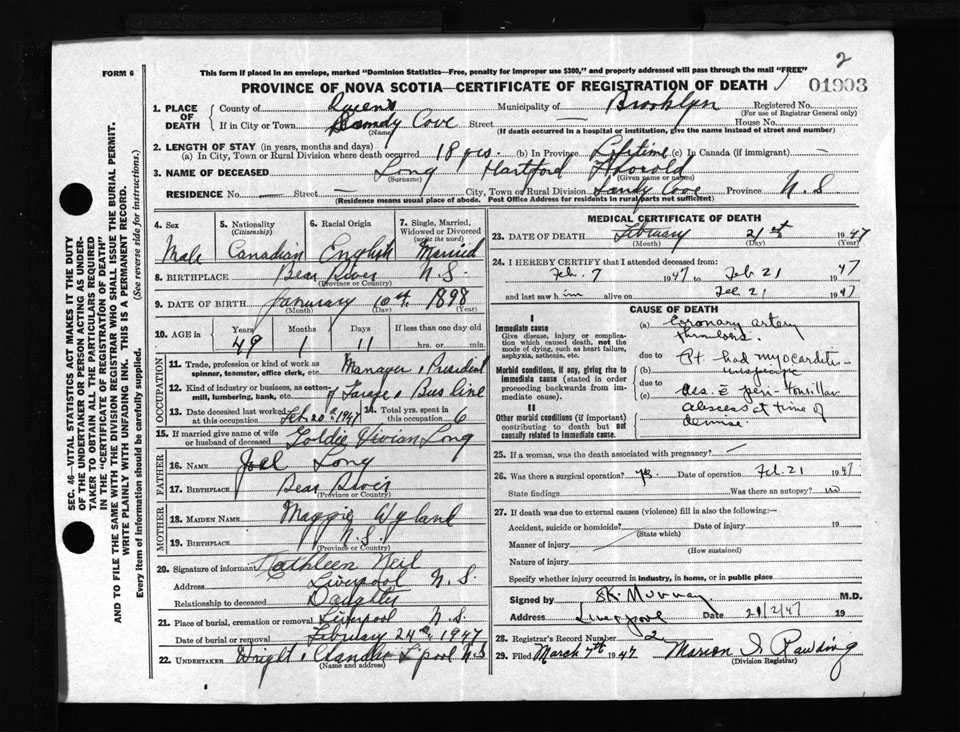 2
FORM 6
This form if placed in an envelope, marked "Dominion Statistics—Free, penalty for improper use $300," and properly addressed will pass through the mail "FREE"
PROVINCE OF NOVA SCOTIA—CERTIFICATE OF REGISTRATION OF DEATH
01993
1. PLACE OF DEATH
County of Queens Municipality of Brooklyn Registered No.
(For use of Registrar General only)
If in City or Town Sandy Cove Street — House No.
(Name) (If death occurred in a hospital or institution, give the name instead of street and number)
2. LENGTH OF STAY (in years, months and days)
(a) In City, Town or Rural Division where death occurred 18 yrs. (b) In Province Lifetime (c) In Canada (if immigrant) —
3. NAME OF DECEASED Long Hartford Harold
(Surname) (Given name or names)
RESIDENCE No. — Street — City, Town or Rural Division Sandy Cove Province N.S
(Residence means usual place of abode. Post Office Address for residents in rural parts not sufficient)
4. Sex Male
5. Nationality (Citizenship) Canadian
6. Racial Origin English
7. Single, Married, Widowed or Divorced (write the word) Married
8. BIRTHPLACE Bear River N.S.
(Province or Country)
9. DATE OF BIRTH January 10th 1898
(Month) (Day) (Year)
10. AGE in Years 49 Months 1 Days 11 If less than one day old hrs. or min.
OCCUPATION
11. Trade, profession or kind of work as spinner, teamster, office clerk, etc. Manager & President
12. Kind of industry or business, as cotton-mill, lumbering, bank, etc. of Garage & Bus line
13. Date deceased last worked at this occupation Feb 20th 1947
14. Total yrs. spent in this occupation 6
15. If married give name of wife or husband of deceased Goldie Vivian Long
FATHER
16. NAME Joel Long
17. BIRTHPLACE Bear River
(Province or Country)
MOTHER
18. MAIDEN NAME Maggie Wyland
19. BIRTHPLACE N.S.
(Province or Country)
20. Signature of informant Kathleen Neil
Address Liverpool N.S.
Relationship to deceased Daughter
21. Place of burial, cremation or removal Liverpool N.S.
Date of burial or removal February 24th, 1947
22. UNDERTAKER Wright & Chandler L'pool N.S
(Name and address)
MEDICAL CERTIFICATE OF DEATH
23. DATE OF DEATH February 21st 1947
(Month) (Day) (Year)
24. I HEREBY CERTIFY that I attended deceased from:
Feb. 7 1947 to Feb 21 1947
and last saw him alive on Feb 21 1947
CAUSE OF DEATH
I
Immediate cause
Give disease, injury or complication which caused death, not the mode of dying, such as heart failure, asphyxia, asthenia, etc.
(a) Coronary artery thrombosis.
due to
Morbid conditions, if any, giving rise to immediate cause (stated in order proceeding backwards from immediate cause).
(b) Pt had myocardite
due to
(c) peri-tonsillar
II
Other morbid conditions (if important) contributing to death but not causally related to immediate cause.
abscess at time of demise.
25. If a woman, was the death associated with pregnancy? —
26. Was there a surgical operation? yes Date of operation Feb. 21 1947
State findings Was there an autopsy? no
27. If death was due to external causes (violence) fill in also the following:—
Accident, suicide or homicide? Date of injury 19
(State which)
Manner of injury
(How sustained)
Nature of injury
Specify whether injury occurred in industry, in home, or in public place
Signed by S.K. Murray M.D.
Address Liverpool Date 21/2/47 19
28. Registrar's Record Number 2
29. Filed March 7th 1947 Marion I. Rawding
(Division Registrar)
SEC. 46—VITAL STATISTICS ACT MAKES IT THE DUTY
OF THE UNDERTAKER OR PERSON ACTING AS UNDER-
TAKER TO OBTAIN ALL THE PARTICULARS REQUIRED
IN THE "CERTIFICATE OF REGISTRATION OF DEATH"
AND TO FILE THE SAME WITH THE DIVISION REGISTRAR WHO SHALL ISSUE THE BURIAL PERMIT.
WRITE PLAINLY WITH UNFADING INK. THIS IS A PERMANENT RECORD.
Every item of information should be carefully supplied. (See reverse side for instructions.)